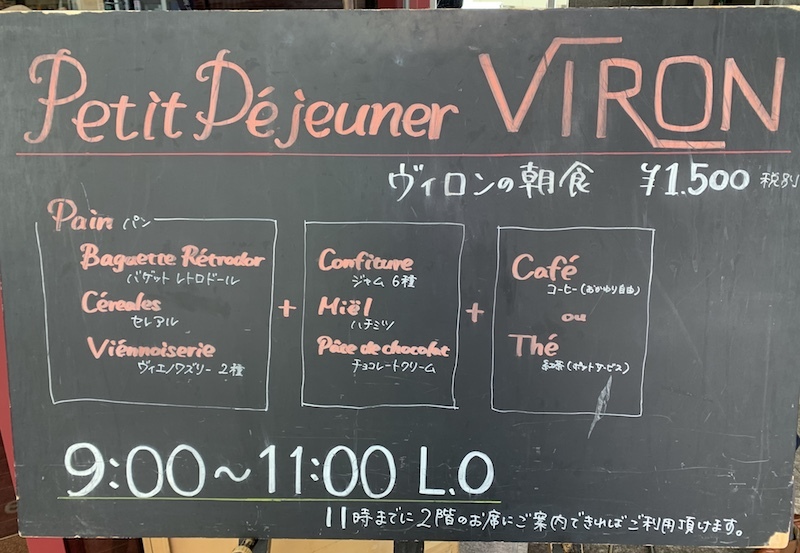 Petit Déjeuner VIRON
ヴィロンの朝食 ¥1.500 税別
Pain パン
Baguette Rétrodor
バゲット レトロドール
Céreales
セレアル
Viénnoiserie
ヴィエノワズリー 2種
+
Confiture
ジャム 6種
Miël
ハチミツ
Pâte de chocolat
チョコレートクリーム
+
Café
コーヒー(おかわり自由)
ou
Thé
紅茶(ポットサービス)
9:00~11:00 L.O
11時までに2階のお席にご案内できればご利用頂けます。